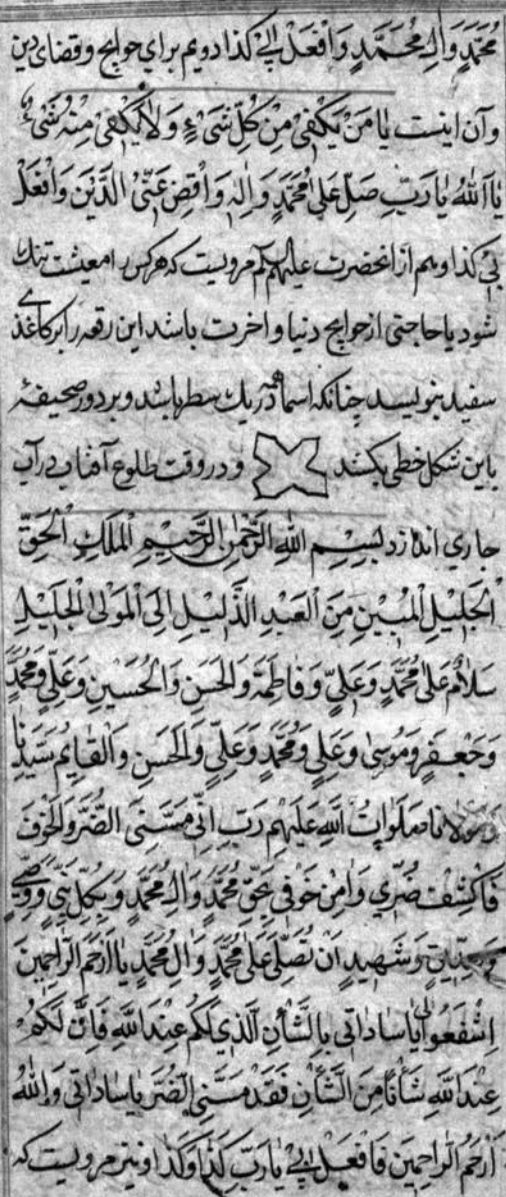 مُحَمَّدٍ وَالِ مُحَمَّدٍ وَافْعَلْ بِي كذا دويم براي حوايج و قضاى دين
وآن اينست يٰا مَنْ يَكْفِيْ مِنْ كُلِّ شَيْءٍ وَلاٰ يَكْفِيْ مِنْهُ شَيْءٌ
يٰا اَللهُ يٰا رَبِّ صَلِّ عَلىٰ مُحَمَّدٍ وَاٰلِهِ وَاقْضِ عَنِّيْ الدَّيْنَ وَافْعَلْ
بِيْ كذا وهم از انحضرت عليهم مرويست كه هركس را معيشت تنك
شود يا حاجتى از حوايج دنيا و اخرت باشد اين رقعه را بر كاغذ
سفيد بنويسد چنانكه اسما همه در يك سطر باشد و بر دور صحيفه
باين شكل خطى بكشد و در وقت طلوع آفتاب در آب
جاري اندازد بِسْمِ اللهِ الرَّحْمٰنِ الرَّحِيْمِ الْمَلِكِ الْحَقِّ
الْجَلِيْلِ الْمُبِيْنِ مِنَ الْعَبْدِ الذَّلِيْلِ اِلَى الْمَوْلَى الْجَلِيْلِ
سَلاٰمٌ عَلىٰ مُحَمَّدٍ وَعَلِيٍّ وَفَاطِمَةَ وَالْحَسَنِ وَالْحُسَيْنِ وَعَلِيٍّ وَمُحَمَّدٍ
وَجَعْفَرٍ وَمُوسىٰ وَعَلِيٍّ وَمُحَمَّدٍ وَعَلِيٍّ وَالْحَسَنِ وَالْقٰايِمِ سَيِّدِنٰا
وَمَوْلاٰنٰا صَلَوٰاتُ اللهِ عَلَيْهِمْ رَبِّ اِنِّيْ مَسَّنِيَ الضُّرُّ وَالْخَوْفُ
فَاكْشِفْ ضُرِّي وَاٰمِنْ خَوْفِي بِحَقِّ مُحَمَّدٍ وَاٰلِ مُحَمَّدٍ وَبِكُلِّ نَبِيٍّ وَوَصِيٍّ
وَصِدِّيْقٍ وَشَهِيْدٍ اَنْ تُصَلِّيَ عَلىٰ مُحَمَّدٍ وَاٰلِ مُحَمَّدٍ يٰا اَرْحَمَ الرّٰاحِمِيْنَ
اِشْفَعُوا لِيْ يٰا سٰادٰاتِي بِالشَّأْنِ الَّذِيْ لَكُمْ عِنْدَ اللهِ فَاِنَّ لَكُمْ
عِنْدَ اللهِ شَأْنًا مِنَ الشَّأْنِ فَقَدْ مَسَّنِيَ الضُّرُّ يٰا سٰادٰاتِي وَاللهُ
اَرْحَمُ الرّٰاحِمِيْنَ فَافْعَلْ بِيْ يٰا رَبِّ كَذٰا وَكَذٰا و نيز مرويست كه